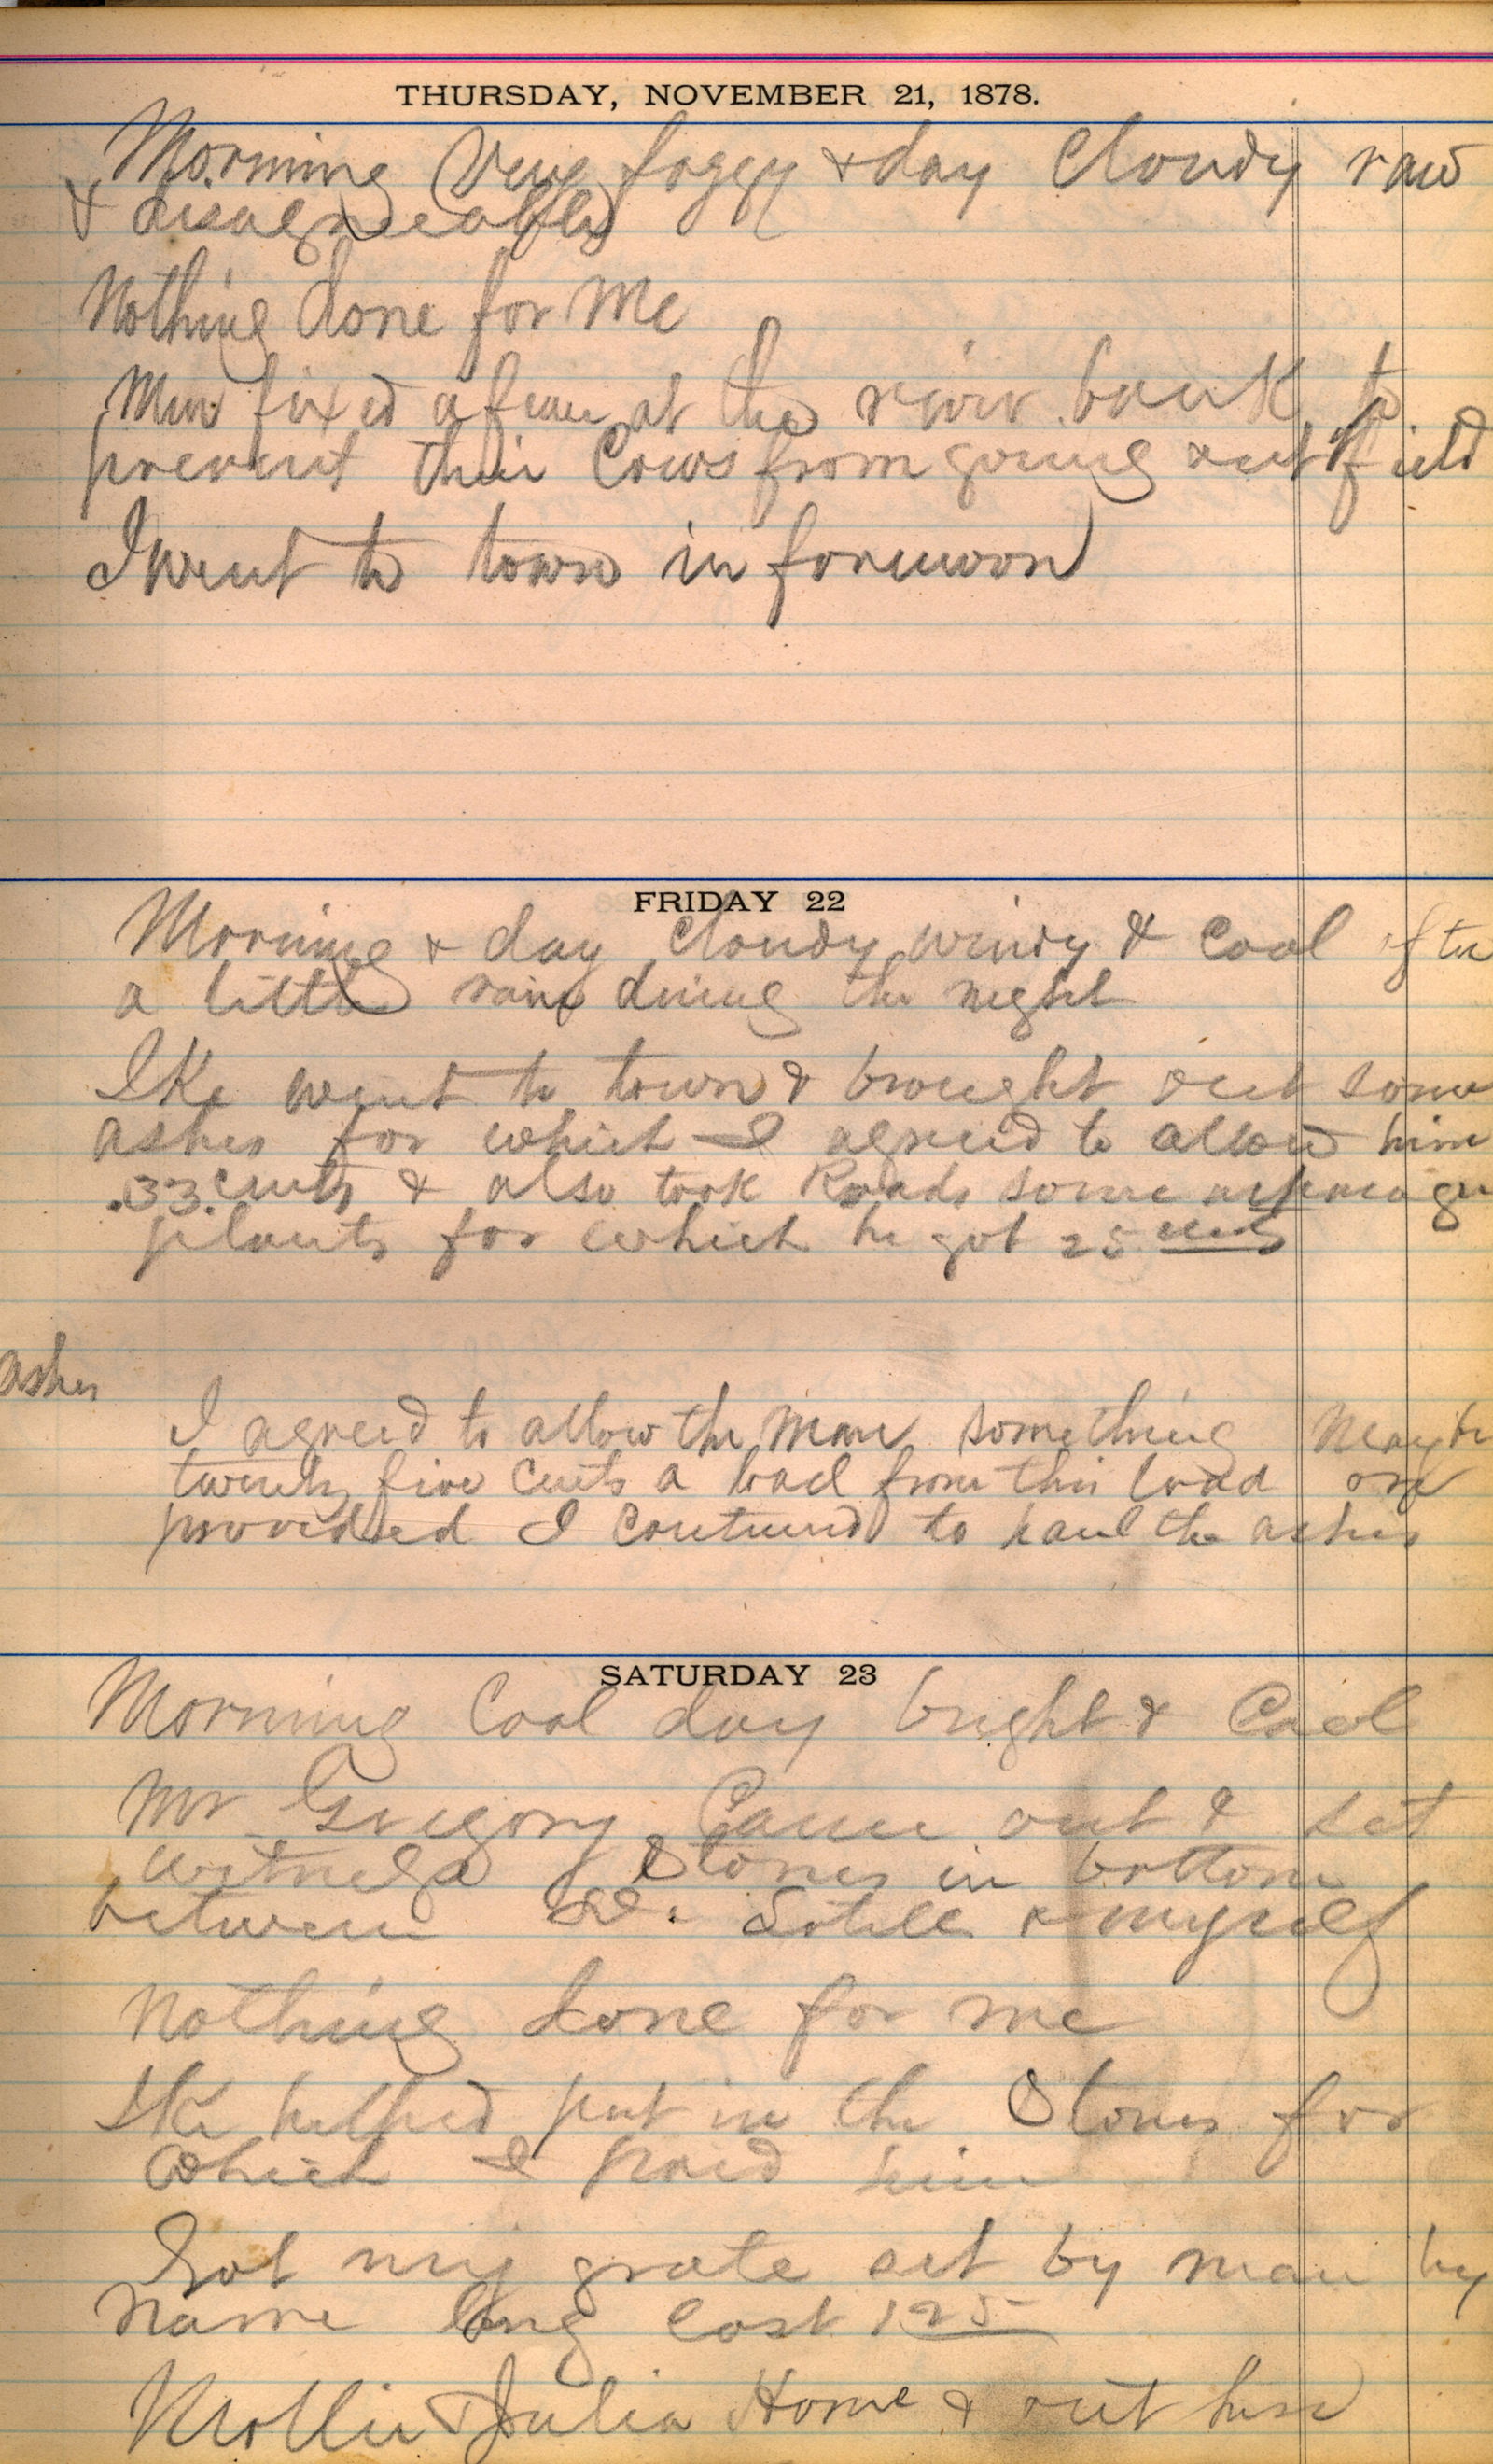 THURSDAY, NOVEMBER 21, 1878.
Morning Very foggy & day Cloudy raw
& disagreeable
Nothing done for me
Men fixed a fence at the river bank to
prevent their Cows from going out of field
I went to town in forenoon
FRIDAY 22
Morning & day Cloudy windy & Cool after
a little rain during the night
Ike went to town & brought out some
ashes for which I agreed to allow him
.33. cents & also took Roads some
plants for which he got 25 cents
ashes
I agreed to allow the man something Maybe
twenty five cents a load from this load on
provided I continued to haul the ashes
SATURDAY 23
Morning Cool day bright & Cool
Mr Gregory Came out & set
witness Stones in bottom
between & myself
Nothing done for me
Ike helped put in the Stones for
which I paid him
Got my grate set by man by
name Long cost 125
Mollie & Julia Home & out here